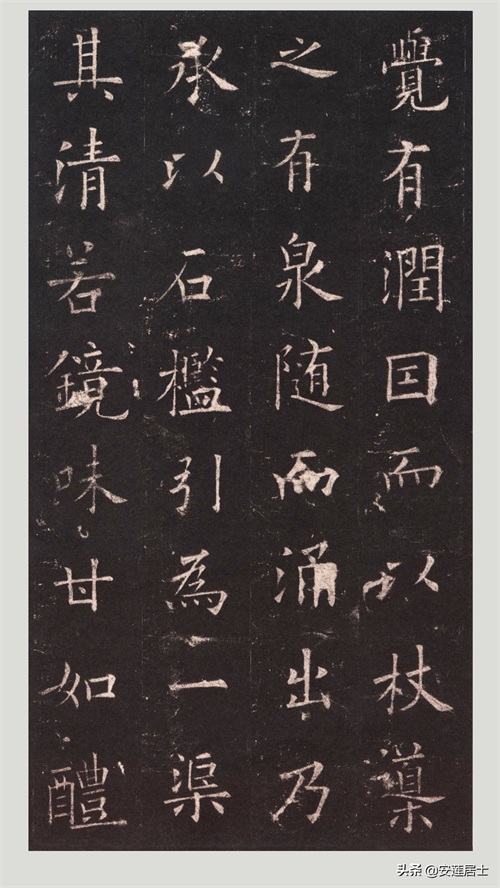 覺有潤因而以杖導
之有泉随而涌出乃
承以石檻引為一渠
其清若鏡味甘如醴
头条 @安莲居士